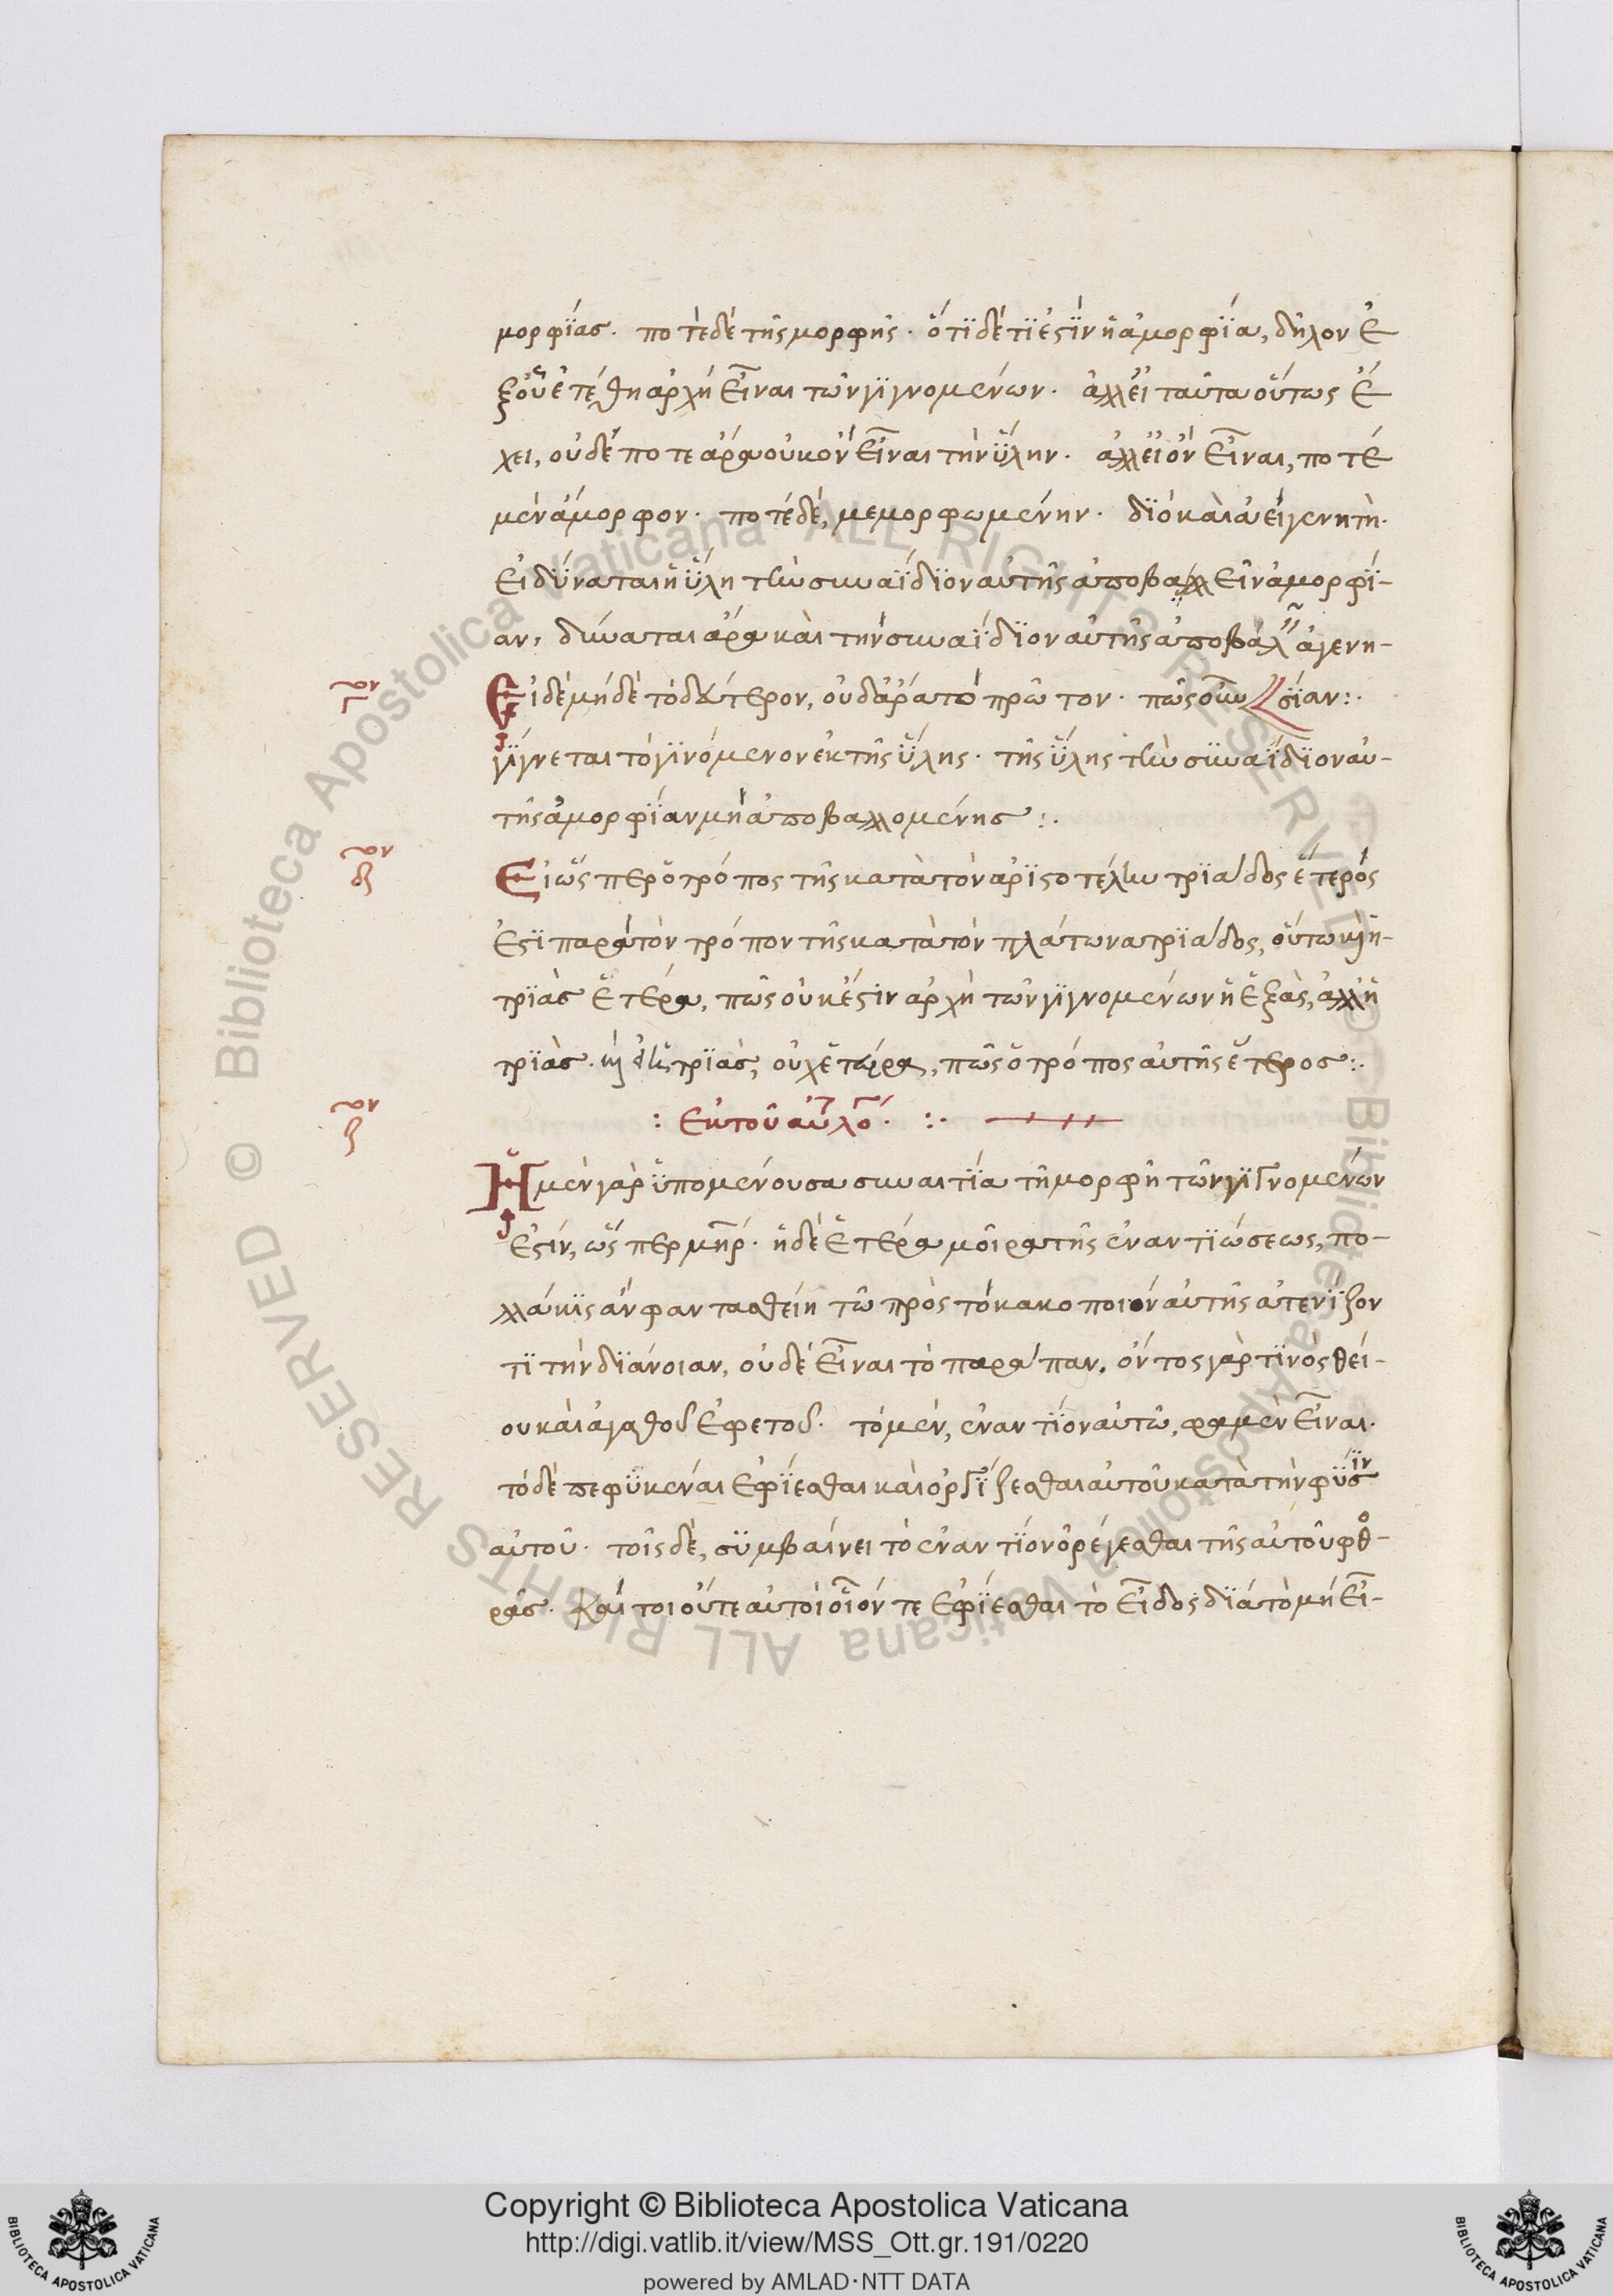 μορφΐας. ποτὲ δὲ τῆς μορφῆς. ὅτϊ δέ τϊ ἐστϊν ἡ ἀμορφΐα, δῆλον ἐ
ξ οὗ ἐτέθη ἀρχὴ εἶναι τῶν γϊγνομένων. ἀλλ' εἰ ταῦτα οὕτως ἔ
χει, οὐδέποτε ἄρα οὐκ ὂν εἶναι τὴν ὕλην. ἀλλ' εἰ ὂν εἶναι, ποτὲ
μὲν ἄμορφον. ποτὲ δὲ, μεμορφωμένην. δϊὸ καὶ ἀειγενητὴ.
εἰ δύναται ἡ ὕλη τὴν συναΐδϊον αὐτῆς ἀποβαλλεῖν ἀμορφΐ-
αν, δύναται ἄρα καὶ τὴν συναΐδϊον αὐτῆς ἀποβαλεῖν ἀγενη-
Εἰ δὲ μηδὲ τὸ δεύτερον, οὐδ' ἄρα τὸ πρῶτον. πῶς οὖν σΐαν:.
γΐγνεται τὸ γϊνόμενον ἐκ τῆς ὕλης. τῆς ὕλης τὴν συναΐδϊον αὐ-
τῆς ἀμορφΐαν μὴ ἀποβαλλομένης:.
Εἰ ὥσπερ ὁ τρόπος τῆς κατὰ τὸν ἀρϊστοτέλην τρϊάδος ἕτερός
ἐστϊ παρὰ τὸν τρόπον τῆς κατὰ τὸν πλάτωνα τρϊάδος, οὕτω καὶ ἡ-
τρϊὰς ἑτέρα, πῶς οὐκ ἔστιν ἀρχὴ τῶν γϊγνομένων ἡ ἑξὰς, ἀλλ' ἡ
τρϊὰς. καὶ εἰ ἡ τρϊὰς, οὐχ ἑτέρα, πῶς ὁ τρόπος αὐτῆς ἕτερος:.
: Ἐκ τοῦ αὐτ λό. :.
Ἡ μὲν γὰρ ὑπομένουσα συναιτΐα τῆ μορφῆ τῶν γϊγνομένων
ἐστὶν, ὥσπερ μηρ. ἡ δὲ ἑτέρα μοῖρα τῆς ἐναντϊώσεως, πο-
λλάκϊς ἂν φαντασθείη τῶ πρὸς τὸ κακοποιὸν αὐτῆς ἀτενΐζον
τϊ τὴν δϊάνοιαν, οὐδὲ εἶναι τὸ παράπαν. ὄντος γάρ τϊνος θεί-
ου καὶ ἀγαθοῦ ἐφετοῦ. τὸ μὲν, ἐναντΐον αὐτῶ, φαμὲν εἶναι.
τὸ δὲ πεφϋκέναι ἐφΐεσθαι καὶ ὀργΐζεσθαι αὐτοῦ κατὰ τὴν φύσϊν
αὐτοῦ. τοῖς δὲ, σϋμβαίνει τὸ ἐναντΐον ὀρέγεσθαι τῆς αὐτοῦ φθο-
ρᾶς. Καίτοι οὔτε αὐτοὶ οἷόν τε ἐφΐεσθαι τὸ εἶδος δϊὰ τὸ μὴ εἶ-
Copyright © Biblioteca Apostolica Vaticana
http://digi.vatlib.it/view/MSS_Ott.gr.191/0220
powered by AMLAD·NTT DATA